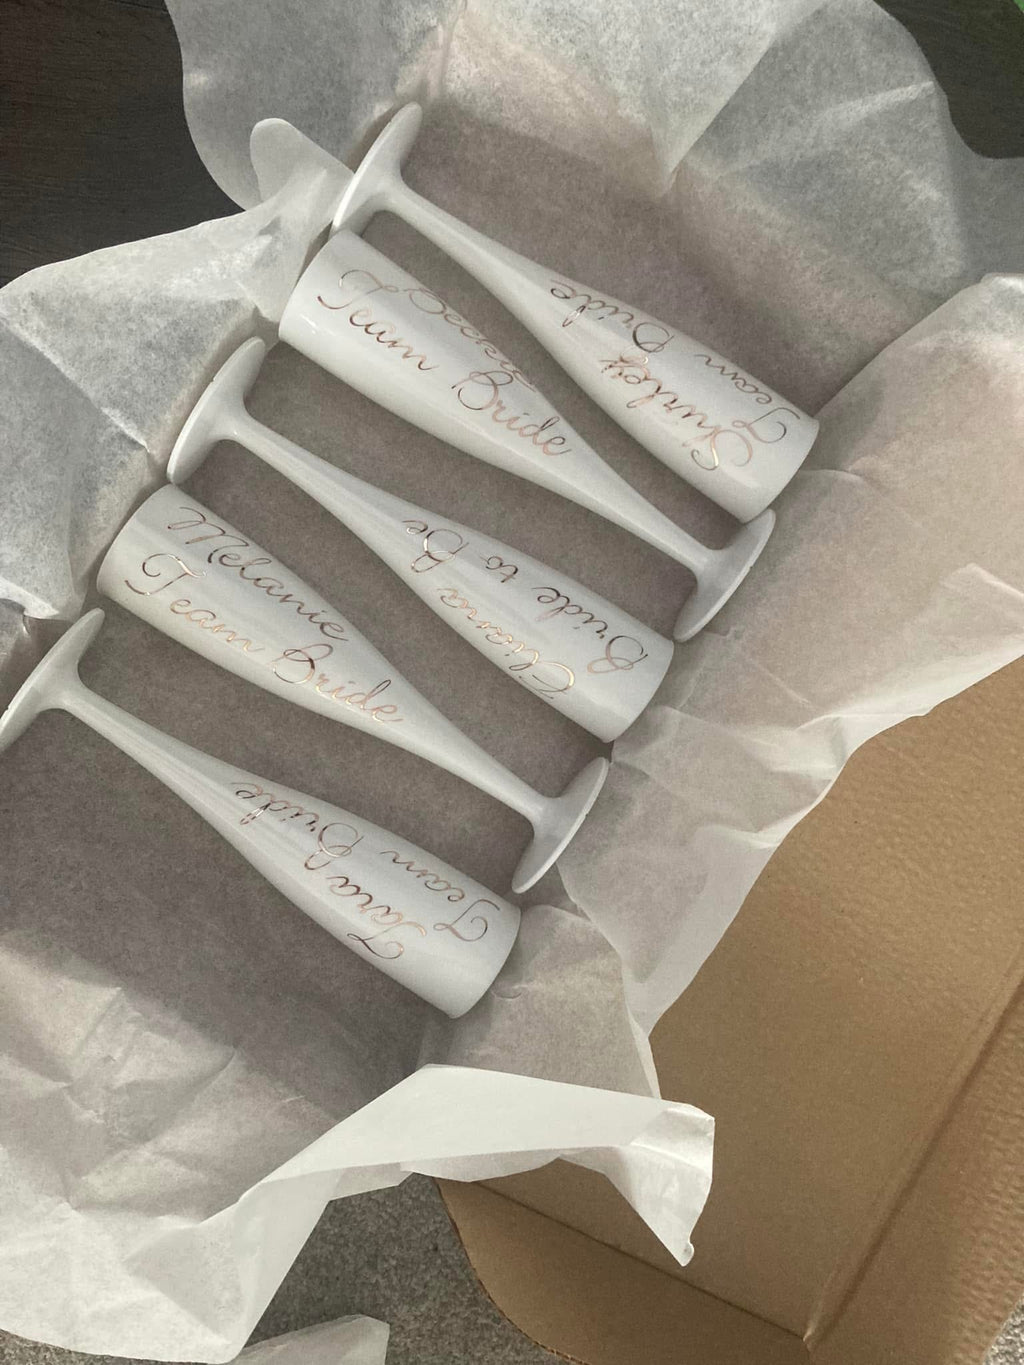 Shirley
Team Bride
Becky
Team Bride
Eliana
Bride to Be
Melanie
Team Bride
Tara
Team Bride